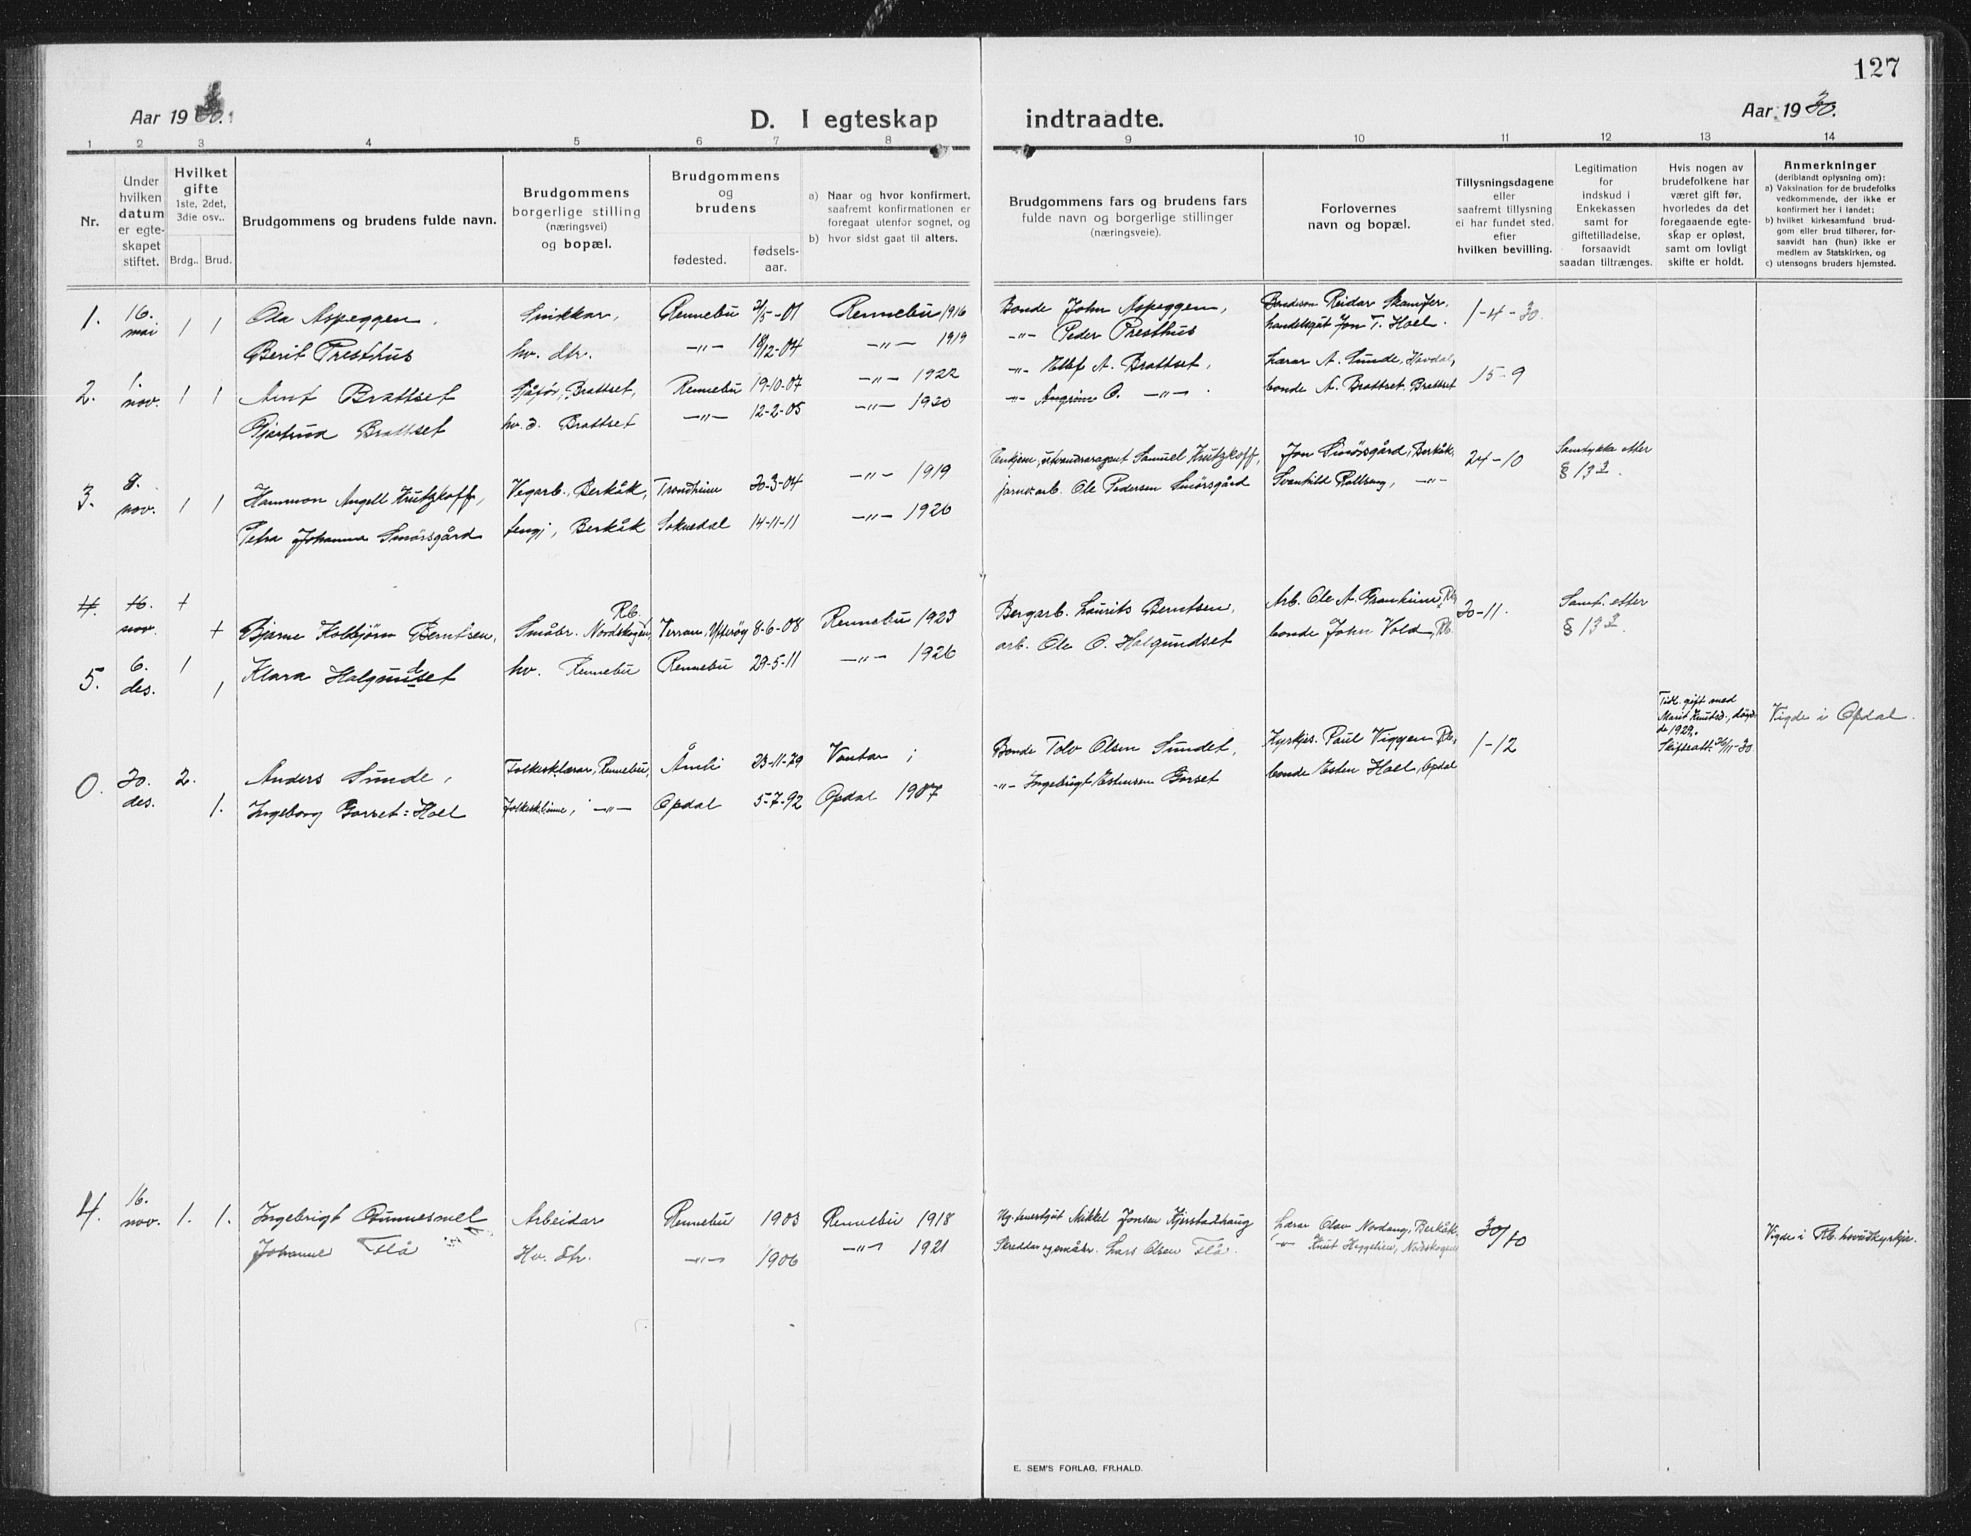 127
Aar 1930.
D. I egteskap indtraadte.
Aar 1930.
1 2 3 4 5 6 7 8 9 10 11 12 13 14
Nr.
Under hvilken datum er egteskapet stiftet.
Hvilket gifte 1ste, 2det, 3die osv..
Brdg.. Brud.
Brudgommens og brudens fulde navn.
Brudgommens borgerlige stilling (næringsvei) og bopæl.
Brudgommens og brudens
fødested. fødselsaar.
a) Naar og hvor konfirmert, saafremt konfirmationen er foregaat utenfor sognet, og
b) hvor sidst gaat til alters.
Brudgommens fars og brudens fars fulde navn og borgerlige stillinger (næringsveie).
Forlovernes navn og bopæl.
Tillysningsdagene eller saafremt tillysning ei har fundet sted, efter hvilken bevilling.
Legitimation for indskud i Enkekassen samt for giftetilladelse, forsaavidt saadan tiltrænges.
Hvis nogen av brudefolkene har været gift før, hvorledes da det foregaaende egteskap er opløst, samt om lovligt skifte er holdt.
Anmerkninger (deriblandt oplysning om):
a) Vaksination for de brudefolks vedkommende, der ikke er konfirmert her i landet;
b) hvilket kirkesamfund brudgom eller brud tilhører, forsaavidt han (hun) ikke er medlem av Statskirken, og
c) utensogns bruders hjemsted.
1. 16. mai 1 1 Ola Aspeggen, Snikkar, Rennebu 2/5-01 Rennebu 1916 Bonde John Aspeggen, Bondeson Reidar Skamfer, 1-4-30.
Berit Presthus hv. dtr. -"- 18/12-04 -"- 1919 -"- Peder Presthus handelsgut Jon T. Hoel.
2. 1. nov. 1 1 Arnt Brattset Sjåfør, Brattset, Rennebu 19-10-07 -"- 1922 -"- A. Brattset, Lærar A. Sunde, 15-9
Gjertrud Brattset hv. d. Brattset -"- 12-2-05 -"- 1920 -"- O. -"- . bonde A. Brattset, Brattset
3. 8. nov. 1 1 Hammon Angell Krutzkoff, Vegarb., Berkåk, Trondheim 30-3-04 -"- 1919 Enkjem., utvandraragent Samuel Krutzkoff, Jon Smørsgård, Berkåk, 24-10 Samtykke etter § 13 3.
Petra Johanna Smørsgård tengj, Berkåk Soknedal 14-11-11 -"- 1926 jarnv.arb. Ole Pedersen Smørsgård Svanhild Rollseng, -"-
4. 16. nov. 1 1
5. 6. des. 1 1 Bjarne Koldbjørn Berntsen, Småbr. Nordskogen, Rb. Verran, Ytterøy 8-6-08 Rennebu 1923 Bergarb. Laurits Berntsen, Arb. Ole A. Granheim, Rb. 30-11. Samt. etter § 13 3.
Klara Halgundset hv. Rennebu Rennebu 29-5-11 -"- 1926 arb. Ole O. Halgundset bonde John Vold, Rb.
0. 30. des. 2. 1. Anders Sunde, Folkesk.lærar, Rennebu, Åmli 23-11-79 Vantar ; Bonde Tolv Olsen Sundet, Kyrkjes. Paul Viggen Rb, 1-12 Tidl. gift med Marit Knutsd., døyde 1929. Skifteatt. 26/11-30 Vigde i Opdal.
Ingeborg Gorset-Hoel Folkesk.lærarinne, -"- Opdal 5-7-92 Opdal 1907 -"- Ingebrigt Estensen Gorset bonde Esten Hoel, Opdal
4. 16. nov. 1. 1. Ingebrigt Gunnesmel Arbeidar Rennebu 1903 Rennebu 1918 Mikkel Jonsen Kjerstadhaug Lærar Olav Nordang, Berkåk 30/10 Vigde i Rb. hovudkyrkje.
Johanne Flå Hv. dtr. -"- 1906 -"- 1921 Skreddar og småbr. Lars Olsen Flå. -"- Knut Heggelien, Nordskogen
E. SEM'S FORLAG, FR.HALD.